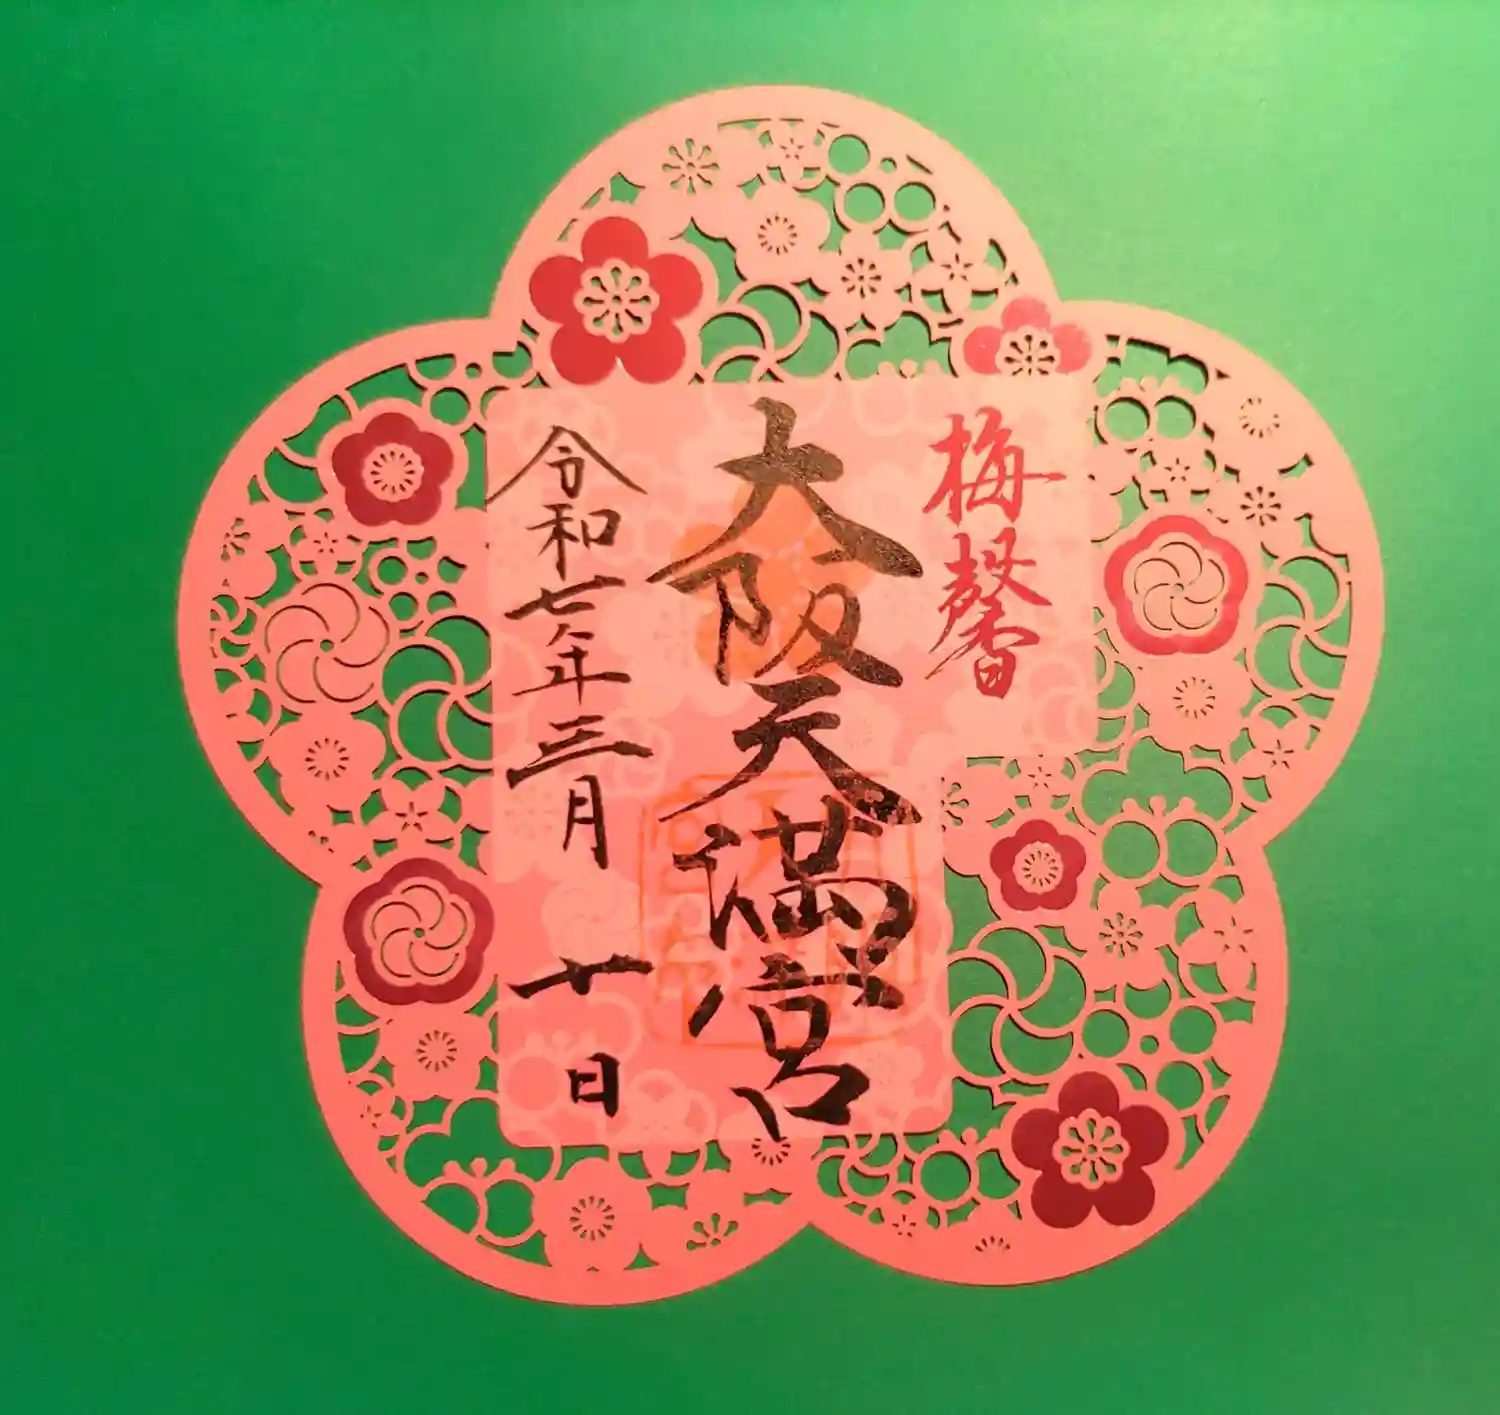 梅馨
大阪天満宮
令和七年三月廿日